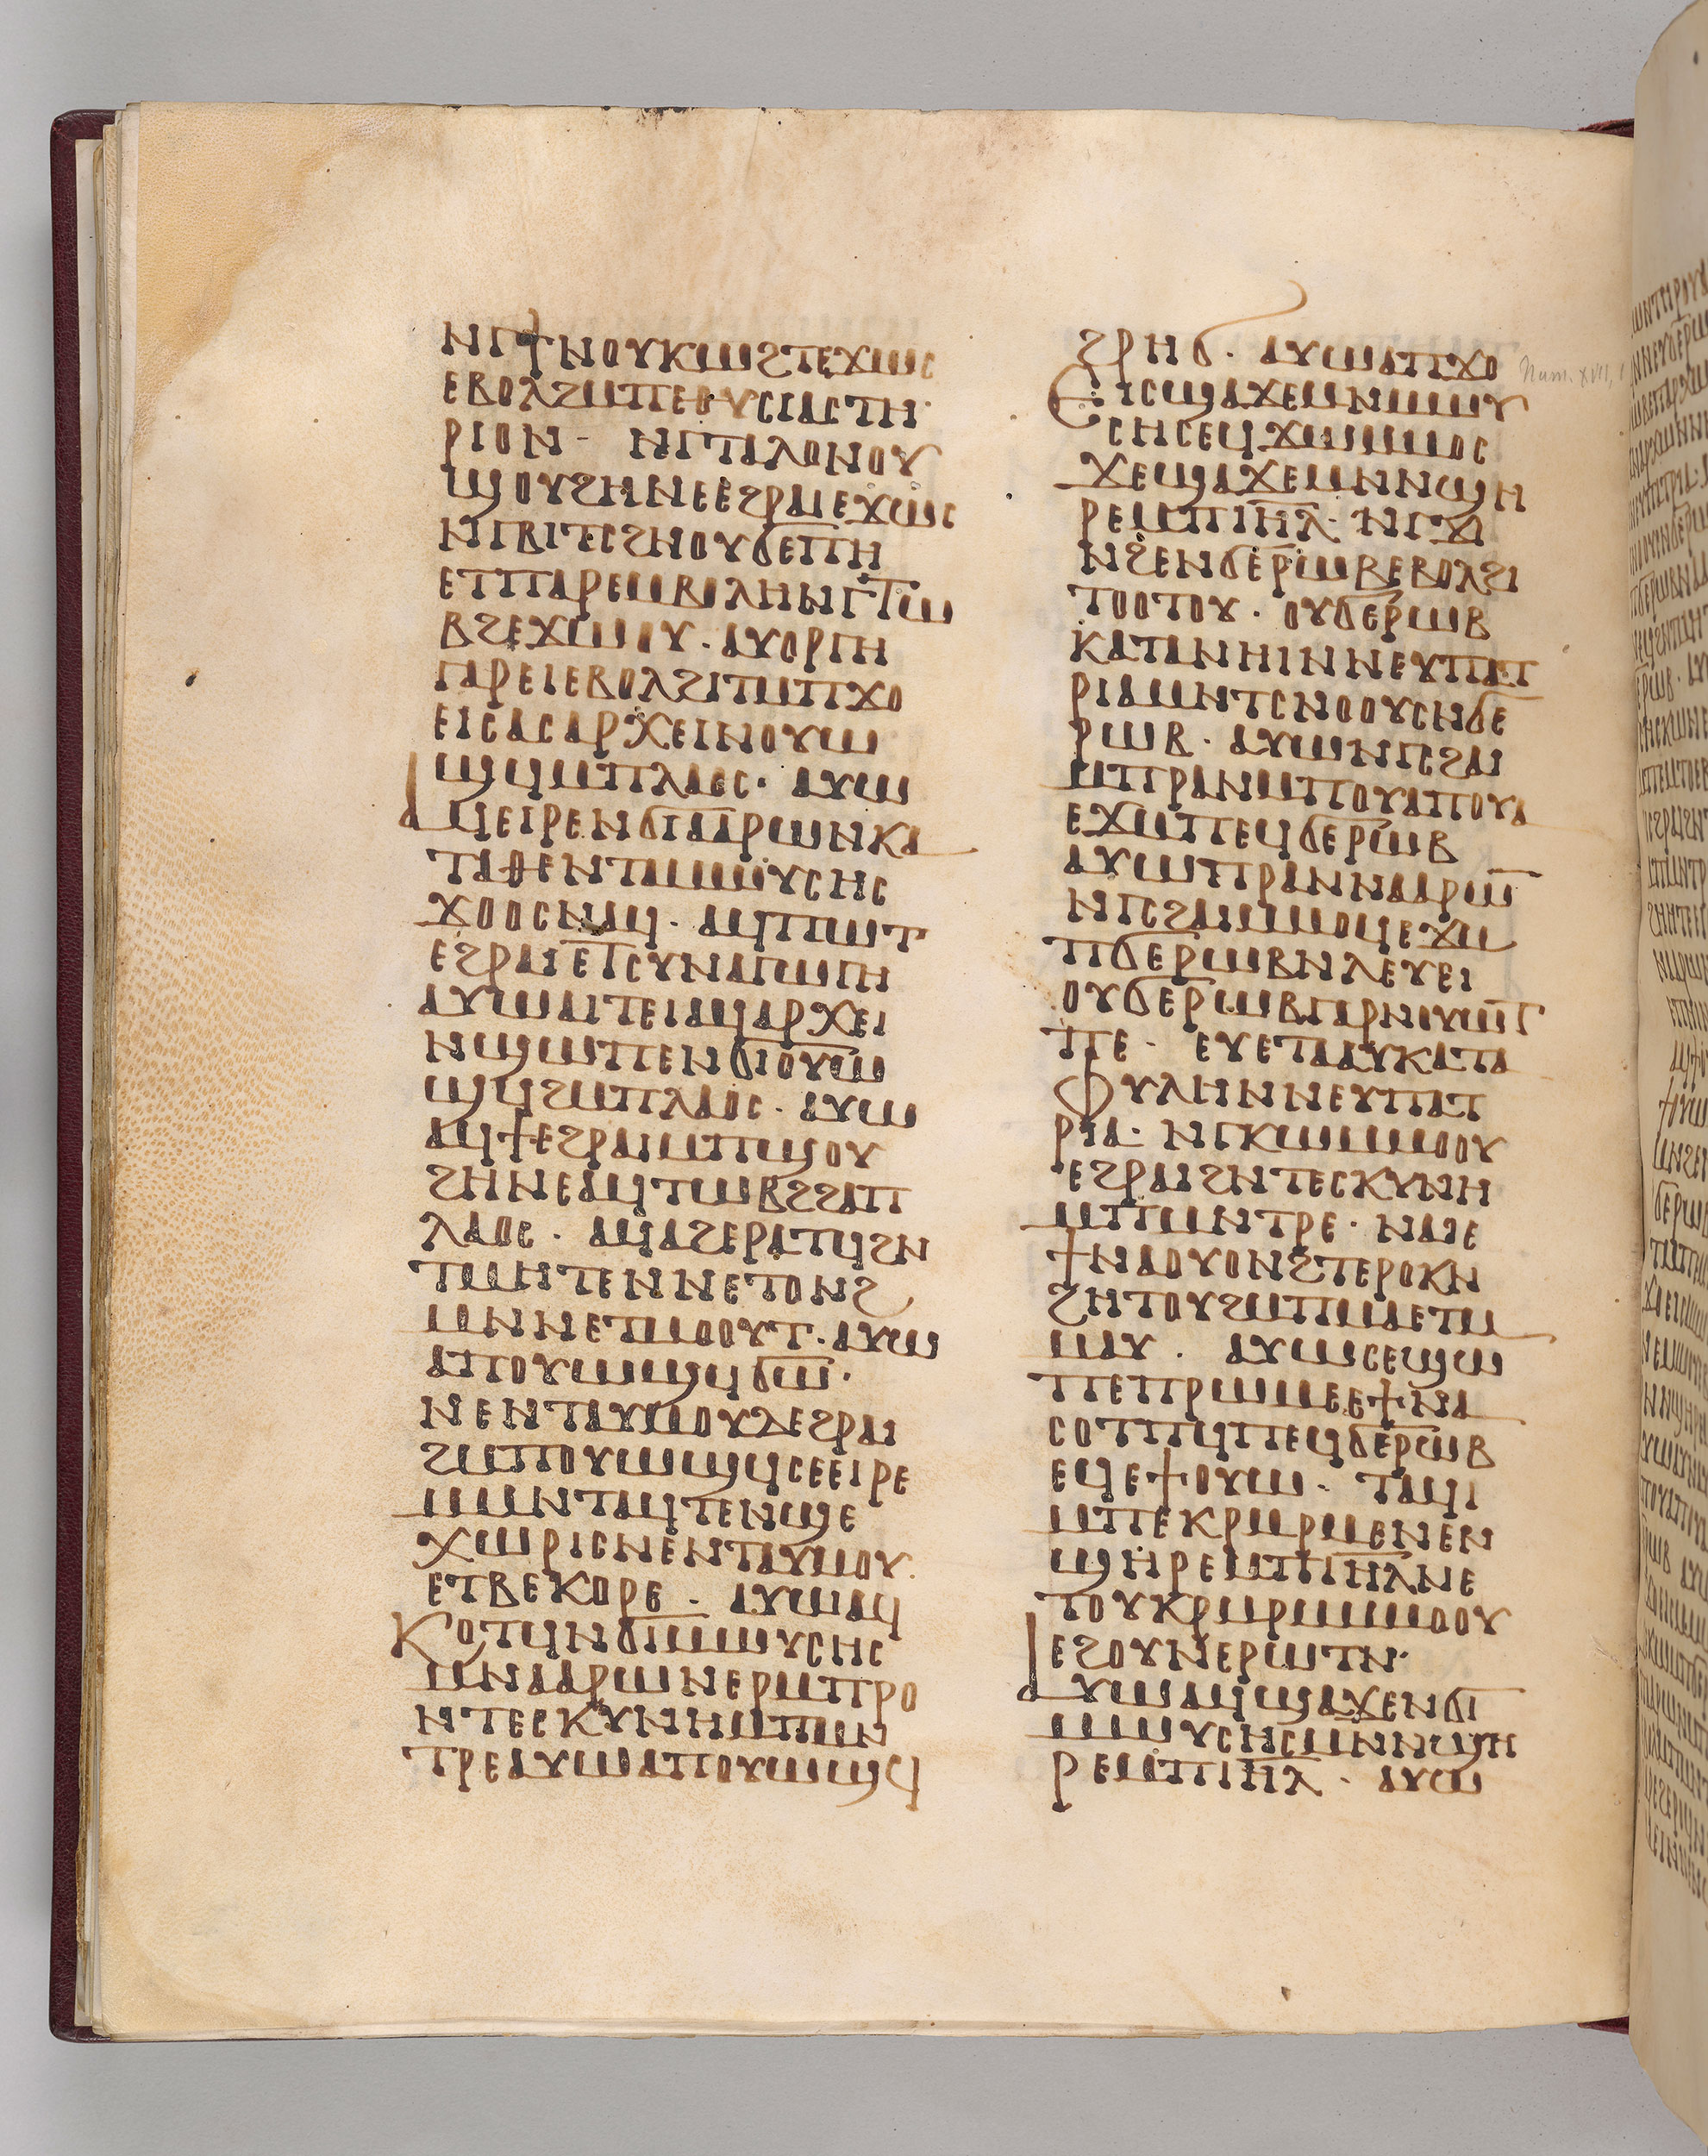 ⲛⲅϯⲛⲟⲩⲕⲱϩⲧⲉϫⲱⲥ
ⲉⲃⲟⲗϩⲙⲡⲉⲑⲩⲥⲓⲁⲥⲧⲏ
ⲣⲓⲟⲛ· ⲛⲅⲧⲁⲗⲟⲛⲟⲩ
ϣⲟⲩϩⲏⲛⲉⲉϩⲣⲁⲓⲉϫⲱⲥ
ⲛⲅⲃⲓⲧⲥϩⲛⲟⲩϭⲉⲡⲏ
ⲉⲧⲡⲁⲣⲉⲙⲃⲟⲗⲏⲛⲅⲧⲱ
ⲃϩⲉϫⲱⲟⲩ· ⲁⲩⲟⲣⲅⲏ
ⲅⲁⲣⲉⲓⲉⲃⲟⲗϩⲓⲧⲙⲡϫⲟ
ⲉⲓⲥⲁⲥⲁⲣⲭⲉⲓⲛⲟⲩⲱ
ϣϥⲙⲡⲗⲁⲟⲥ· ⲁⲩⲱ
ⲁϥⲉⲓⲣⲉⲛϭⲓⲁⲁⲣⲱⲛⲕⲁ
ⲧⲁⲑⲉⲛⲧⲁⲙⲱⲩⲥⲏⲥ
ϫⲟⲟⲥⲛⲁϥ· ⲁϥⲡⲱⲧ
ⲉϩⲣⲁⲓⲉⲧⲥⲩⲛⲁⲅⲱⲅⲏ
ⲁⲩⲱⲁⲓⲧⲉⲓⲁϥⲁⲣⲭⲉⲓ
ⲛϣⲱⲡⲉⲛϭⲓⲟⲩⲱ
ϣϥϩⲙⲡⲗⲁⲟⲥ· ⲁⲩⲱ
ⲁϥϯⲉϩⲣⲁⲓⲙⲡϣⲟⲩ
ϩⲏⲛⲉⲁϥⲧⲱⲃϩϩⲁⲡ
ⲗⲁⲟⲥ· ⲁϥⲁϩⲉⲣⲁⲧϥϩⲛ
ⲧⲙⲏⲧⲉⲛⲛⲉⲧⲟⲛϩ
ⲙⲛⲛⲉⲧⲙⲟⲟⲩⲧ· ⲁⲩⲱ
ⲁⲡⲟⲩⲱϣϥϭⲱ·
ⲛⲉⲛⲧⲁⲩⲙⲟⲩⲇⲉϩⲣⲁⲓ
ϩⲙⲡⲟⲩⲱϣϥⲥⲉⲉⲓⲣⲉ
ⲙⲙⲛⲧⲁϥⲧⲉⲛϣⲉ
ⲭⲱⲣⲓⲥⲛⲉⲛⲧⲁⲩⲙⲟⲩ
ⲉⲧⲃⲉⲕⲟⲣⲉ· ⲁⲩⲱⲁϥ
ⲕⲟⲧϥⲛϭⲓⲙⲱⲩⲥⲏⲥ
ⲙⲛⲁⲁⲣⲱⲛⲉⲣⲙⲡⲣⲟ
ⲛⲧⲉⲥⲕⲩⲛⲏⲙⲡⲙⲛ
ⲧⲣⲉⲁⲩⲱⲁⲡⲟⲩⲱϣϥ
ϩⲣⲏϭ· ⲁⲩⲱⲁⲡϫⲟ
ⲉⲓⲥϣⲁϫⲉⲙⲛⲙⲱⲩ
ⲥⲏⲥⲉϥϫⲱⲙⲙⲟⲥ
ϫⲉϣⲁϫⲉⲙⲛⲛϣⲏ
ⲣⲉⲙⲡⲓⲏⲗ· ⲛⲅϫⲓ
ⲛϩⲉⲛϭⲉⲣⲱⲃⲉⲃⲟⲗϩⲓ
ⲧⲟⲟⲧⲟⲩ· ⲟⲩϭⲉⲣⲱⲃ
ⲕⲁⲧⲁⲛⲏⲓⲛⲛⲉⲩⲡⲁⲧ
ⲣⲓⲁⲙⲛⲧⲥⲛⲟⲟⲩⲥⲛϭⲉ
ⲣⲱⲃ· ⲁⲩⲱⲛⲅⲥϩⲁⲓ
ⲙⲡⲣⲁⲛⲙⲡⲟⲩⲁⲡⲟⲩⲁ
ⲉϫⲙⲡⲉϥϭⲉⲣⲱⲃ
ⲁⲩⲱⲡⲣⲁⲛⲛⲁⲁⲣⲱ̅
ⲛⲅⲥϩⲁⲓⲙⲙⲟϥⲉϫⲙ
ⲡϭⲉⲣⲱⲃⲛⲗⲉⲩⲉⲓ
ⲟⲩϭⲉⲣⲱⲃⲅⲁⲣⲛⲟⲩⲱⲧ
ⲡⲉ· ⲉⲩⲉⲧⲁⲁⲩⲕⲁⲧⲁ
ⲫⲩⲗⲏⲛⲛⲉⲩⲡⲁⲧ
ⲣⲓⲁ· ⲛⲅⲕⲱⲙⲙⲟⲟⲩ
ⲉϩⲣⲁⲓϩⲛⲧⲉⲥⲕⲩⲛⲏ
ⲙⲡⲙⲛⲧⲣⲉ· ⲛⲁⲓⲉ
ϯⲛⲁⲟⲩⲟⲛϩⲧⲉⲣⲟⲕⲛ
ϩⲏⲧⲟⲩϩⲙⲡⲙⲁⲉⲧⲙ
ⲙⲁⲩ· ⲁⲩⲱⲥⲉϣⲱ
ⲡⲉⲡⲣⲱⲙⲉⲉϯⲛⲁ
ⲥⲟⲧⲡϥⲡⲉϥϭⲉⲣⲱⲃ
ⲉϥⲉϯⲟⲩⲱ· ⲧⲁϥⲓ
ⲙⲡⲉⲕⲣⲙⲣⲙⲉⲛⲉⲛ
ϣⲏⲣⲉⲙⲡⲓⲏⲗⲛⲉ
ⲧⲟⲩⲕⲣⲙⲣⲙⲙⲙⲟⲟⲩ
ⲉϩⲟⲩⲛⲉⲣⲱⲧⲛ·
ⲁⲩⲱⲁϥϣⲁϫⲉⲛϭⲓ
ⲙⲱⲩⲥⲏⲥⲙⲛⲛϣⲏ
ⲣⲉⲙⲡⲓⲏⲗ· ⲁⲩⲱ
Num. XVII, 1